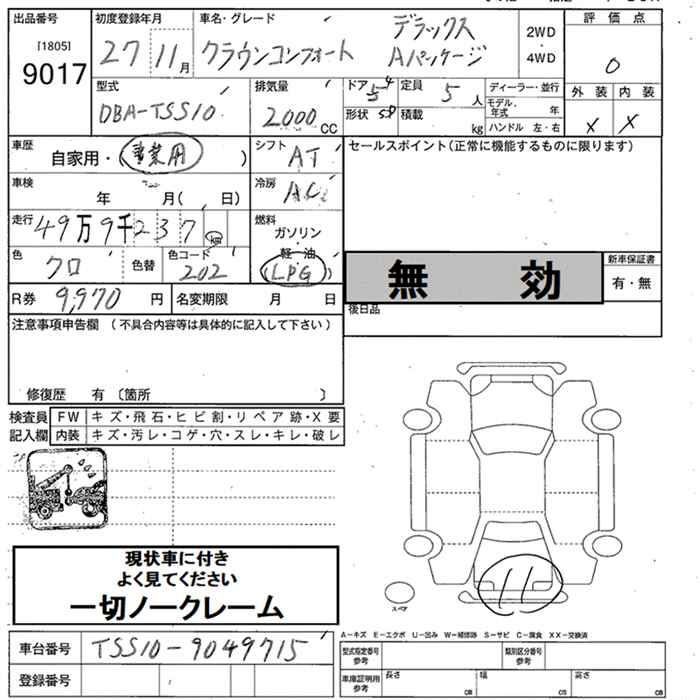 出品番号 初度登録年月 車名・グレード 評価点
[1805]
9017 27 11月 クラウンコンフォート デラックス Aパッケージ 2WD・4WD 0
型式 排気量 ドア 4 定員 ディーラー・並行 外装 内装
DBA-TSS10 2000cc 5 5人 モデル年式
形状 SD 積載 kg ハンドル 左・右 X X
車歴 自家用・(事業用) シフト AT セールスポイント(正常に機能するものに限ります)
車検 年 月( 日) 冷房 AC
走行 49万9千237km 燃料 ガソリン・軽油
色 クロ 色替 色コード 202 LPG 無効 新車保証書 有・無
R券 9,970円 名変期限 月 日 後日品
注意事項申告欄(不具合内容等は具体的に記入して下さい)
修復歴 有〔箇所 〕
検査員 FW キズ・飛石・ヒビ割・リペア跡・X要
記入欄 内装 キズ・汚レ・コゲ・穴・スレ・キレ・破レ
現状車に付き
よく見てください
一切ノークレーム
11
スペア
車台番号 TSS10-9049715
登録番号
A-キズ E-エクボ U-凹み W-補修跡 S-サビ C-腐食 XX-交換済
型式指定番号参考 類別区分番号参考
車庫証明用参考 長さ cm 幅 cm 高さ cm